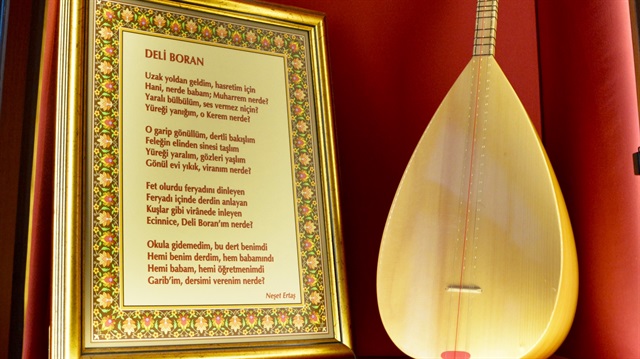 DELİ BORAN
Uzak yoldan geldim, hasretim için
Hani, nerde babam; Muharrem nerde?
Yaralı bülbülüm, ses vermez niçin?
Yüreği yanığım, o Kerem nerde?
O garip gönüllüm, dertli bakışlım
Feleğin elinden sinesi taşlım
Yüreği yaralım, gözleri yaşlım
Gönül evi yıkık, viranım nerde?
Fet olurdu feryadını dinleyen
Feryadı içinde derdin anlayan
Kuşlar gibi virânede inleyen
Ecinnice, Deli Boran'ım nerde?
Okula gidemedim, bu dert benimdi
Hemi benim derdim, hem babamındı
Hemi babam, hemi öğretmenimdi
Garib'im, dersimi verenim nerde?
Neşet Ertaş